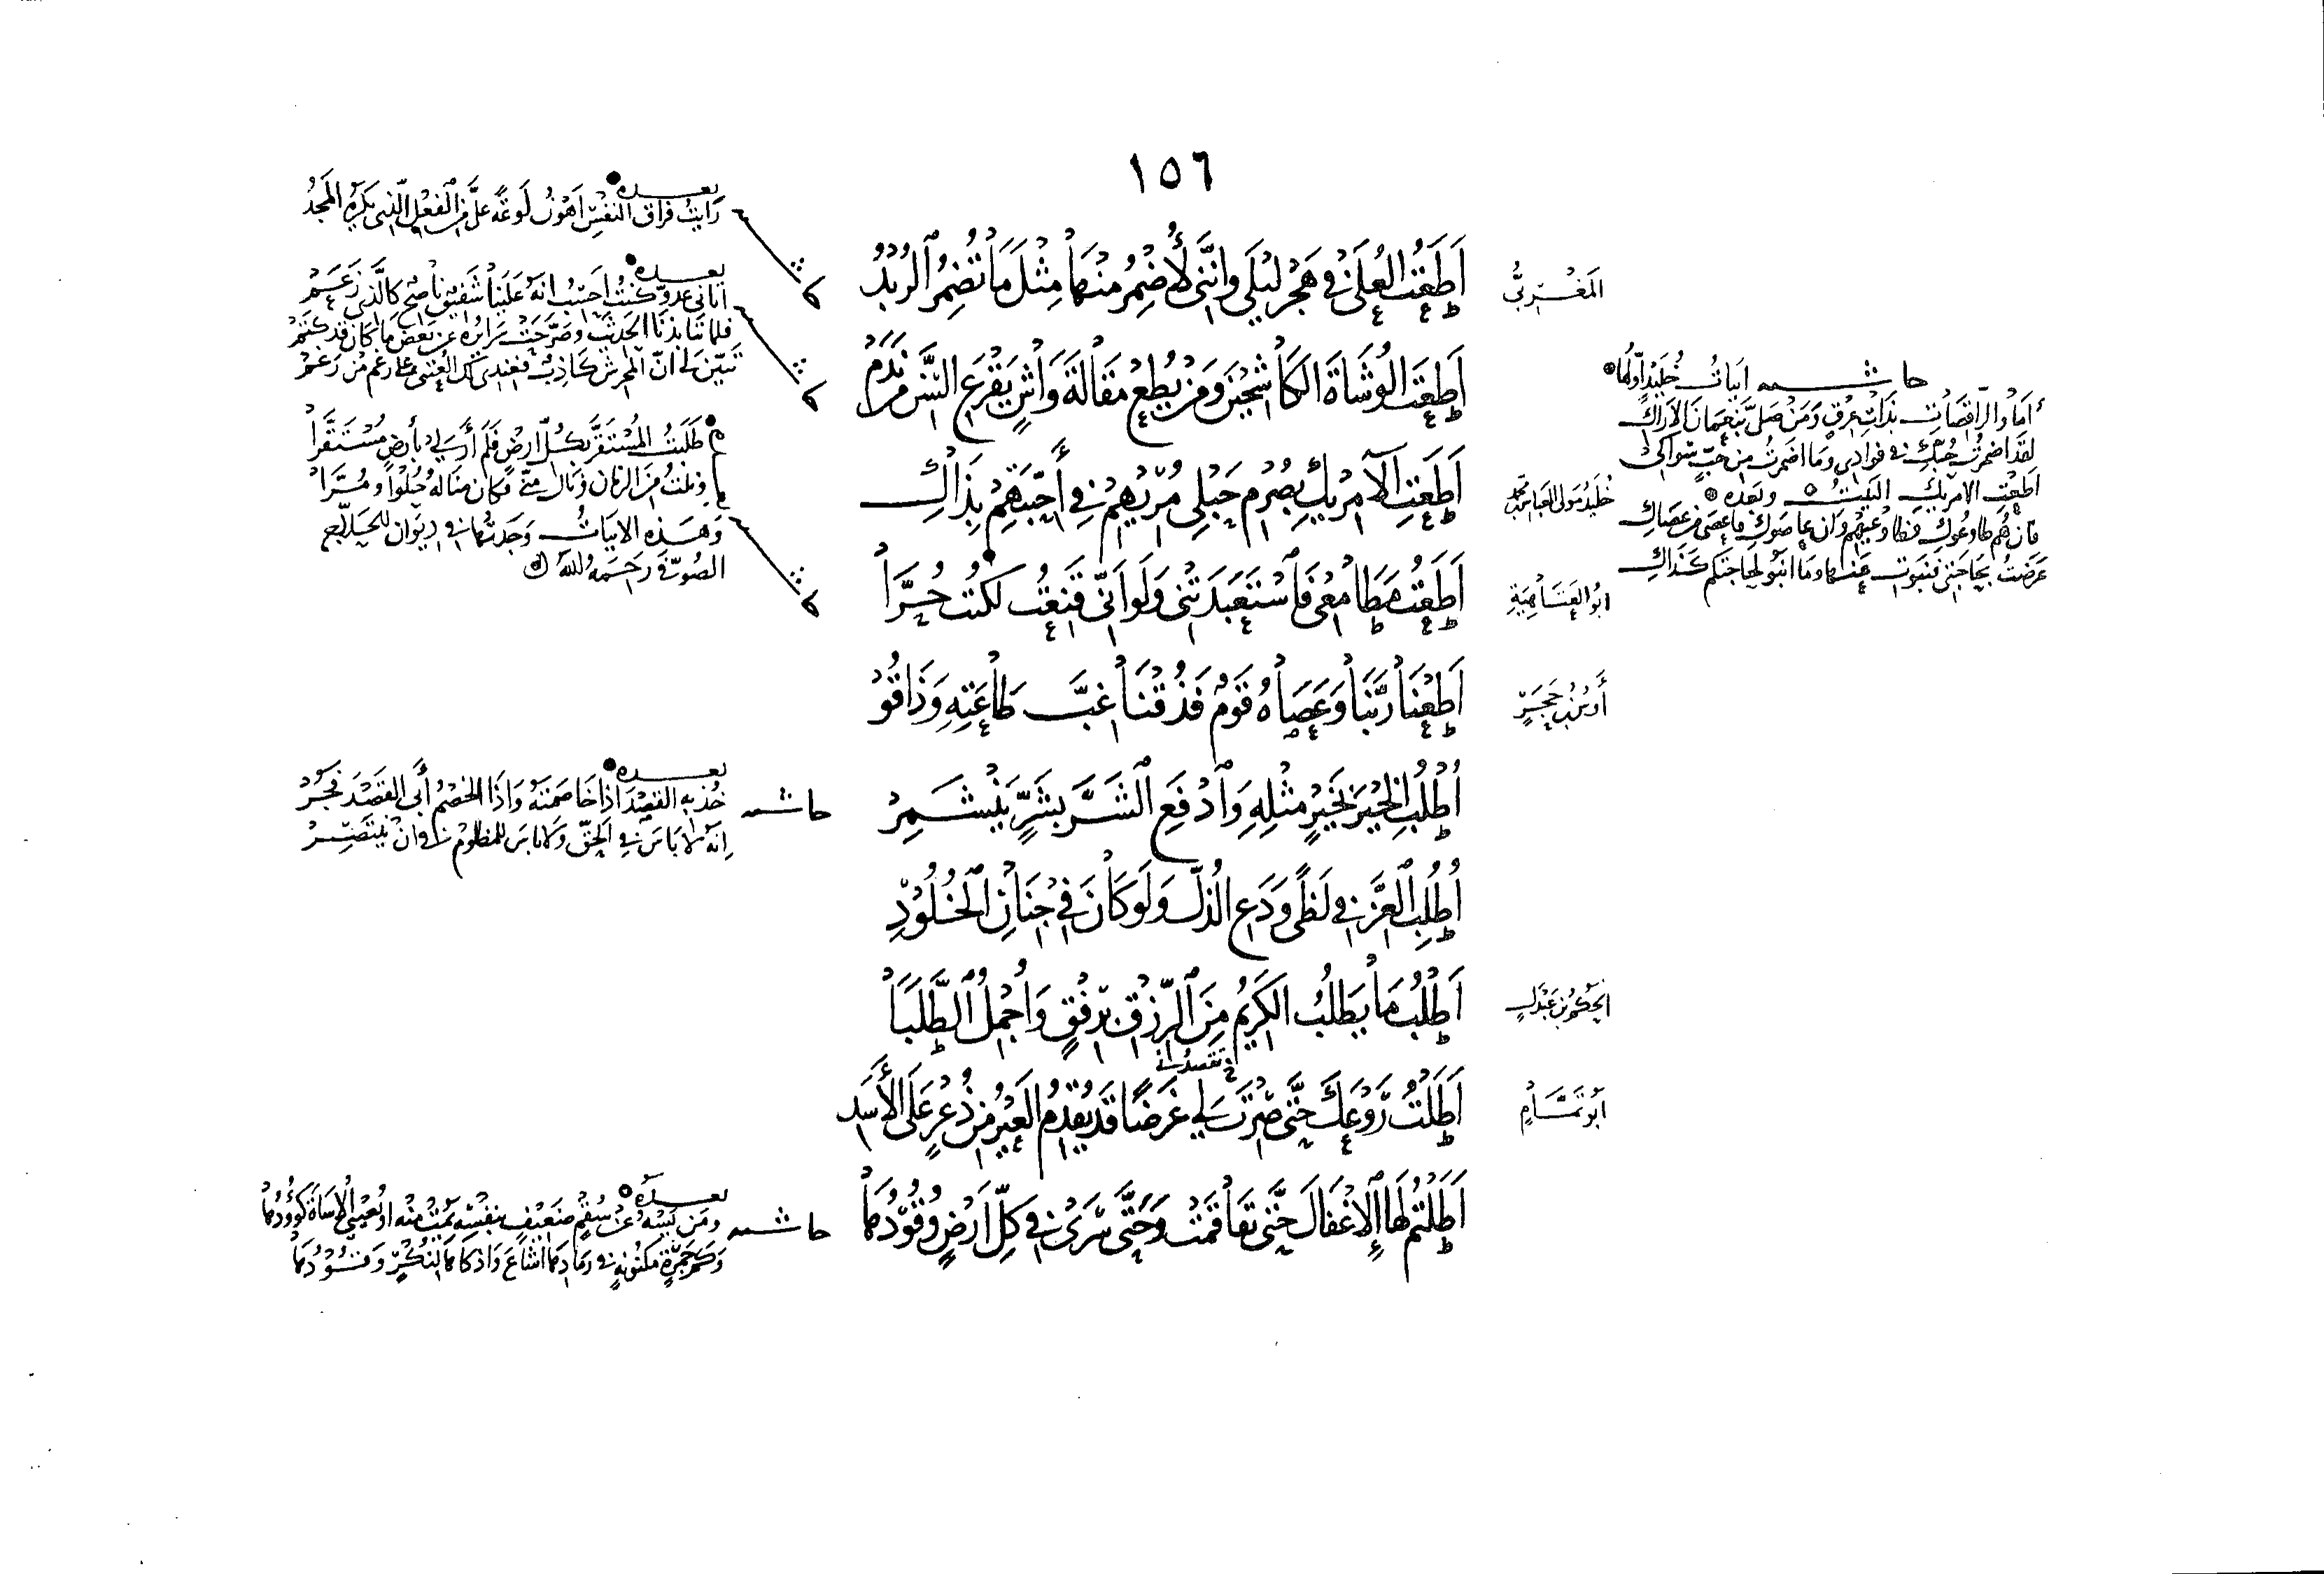 ١٥٦
المغربي
أَطَعْتُ العُلَى في هَجْرِ لَيْلَى وإنَّني لأُضْمِرُ منها مِثْلَ ما تُضْمِرُ الزُّبْدُ
بعده
رأيتُ فراق النفس أهون لوعة على من الفعل الذي يكره المجدُ
أَطَعْتَ الوُشاةَ الكاشِحِينَ ومَنْ يُطِعْ مَقالةَ واشٍ يَقْرَعِ السِّنَّ مِنْ نَدَمِ
بعده
أتاني عدوّ كنتُ أحسب أنه علينا شفيق ناصح كالذي زعم
فلما تنابذنا الحديث وصرّحت سرائره عن بعض ما كان قد كتم
تبيّن لي أنّ المحرّش كاذب فعندي لك العتبى على رغم من رغم
خليد مولى العباس بن محمد
أَطَعْتِ الآمِرِيكِ بِصُرْمِ حَبْلي مُرِيهِمْ في أَحِبَّتِهِمْ بِذاكِ
حاشية أبيات خليد أولها
أما والراقصات بذات عرق ومن صلى بنعمان الأراك
لقد أضمرت حبك في فؤادي وما أضمرت من حب سواك
أطعت الآمريك البيت وبعده
فإن هم طاوعوك فطاوعيهم وإن عاصوك فاعصي من عصاك
عرضت بحاجتي فنبوت عنها وما أنبو لحاجتكم كذاك
أبو العتاهية
أَطَعْتُ مَطامِعي فاسْتَعْبَدَتْني ولَوْ أنّي قَنِعْتُ لَكُنْتُ حُرَّا
طلبتُ المستقرّ بكل أرض فلم أر لي بأرض مستقرّا
وذلك وهذه الأبيات وجدتها في ديوان الحلاج
الصوفي رحمه الله
أوس بن حجر
أَطَعْنا رَبَّنا وعَصاهُ قَوْمٌ فَذُقْنا غِبَّ طاعَتِهِ وذاقُوا
اُطْلُبِ الخَيْرَ بِخَيْرٍ مِثْلِهِ وادْفَعِ الشَّرَّ بِشَرٍّ يَنْشَمِرْ
حاشية
بعده
خذ به القصد إذا خاصمته وإذا الخصم أبى القصد فجر
إنه لا بأس في الحق ولا بأس للمظلوم في أن ينتصر
اُطْلُبِ العِزَّ في لَظًى ودَعِ الذُّلَّ ولَوْ كانَ في جِنانِ الخُلُودِ
الحكم بن عبدل
أَطْلُبُ ما يَطْلُبُ الكَرِيمُ مِنَ الرِّزْقِ بِرِفْقٍ وأُجْمِلُ الطَّلَبَا
أبو تمام
أَطَلْتُ رَوْعَكَ حتّى صِرْتَ لي غَرَضًا قَدْ يُقْدِمُ العَيْرُ مِنْ ذُعْرٍ عَلَى الأَسَدِ
أَطَلْتُمْ لها الإغْفالَ حتّى تَفاقَمَتْ وحتّى سَرَى في كلِّ أَرْضٍ وُقُودُها
حاشية
بعده
ومن يسه عن سقم ضعيف بنفسه يمت منه أو يعيي الأساة كؤودها
وكم جمرة مكنونة في رمادها أشاع وأذكاها